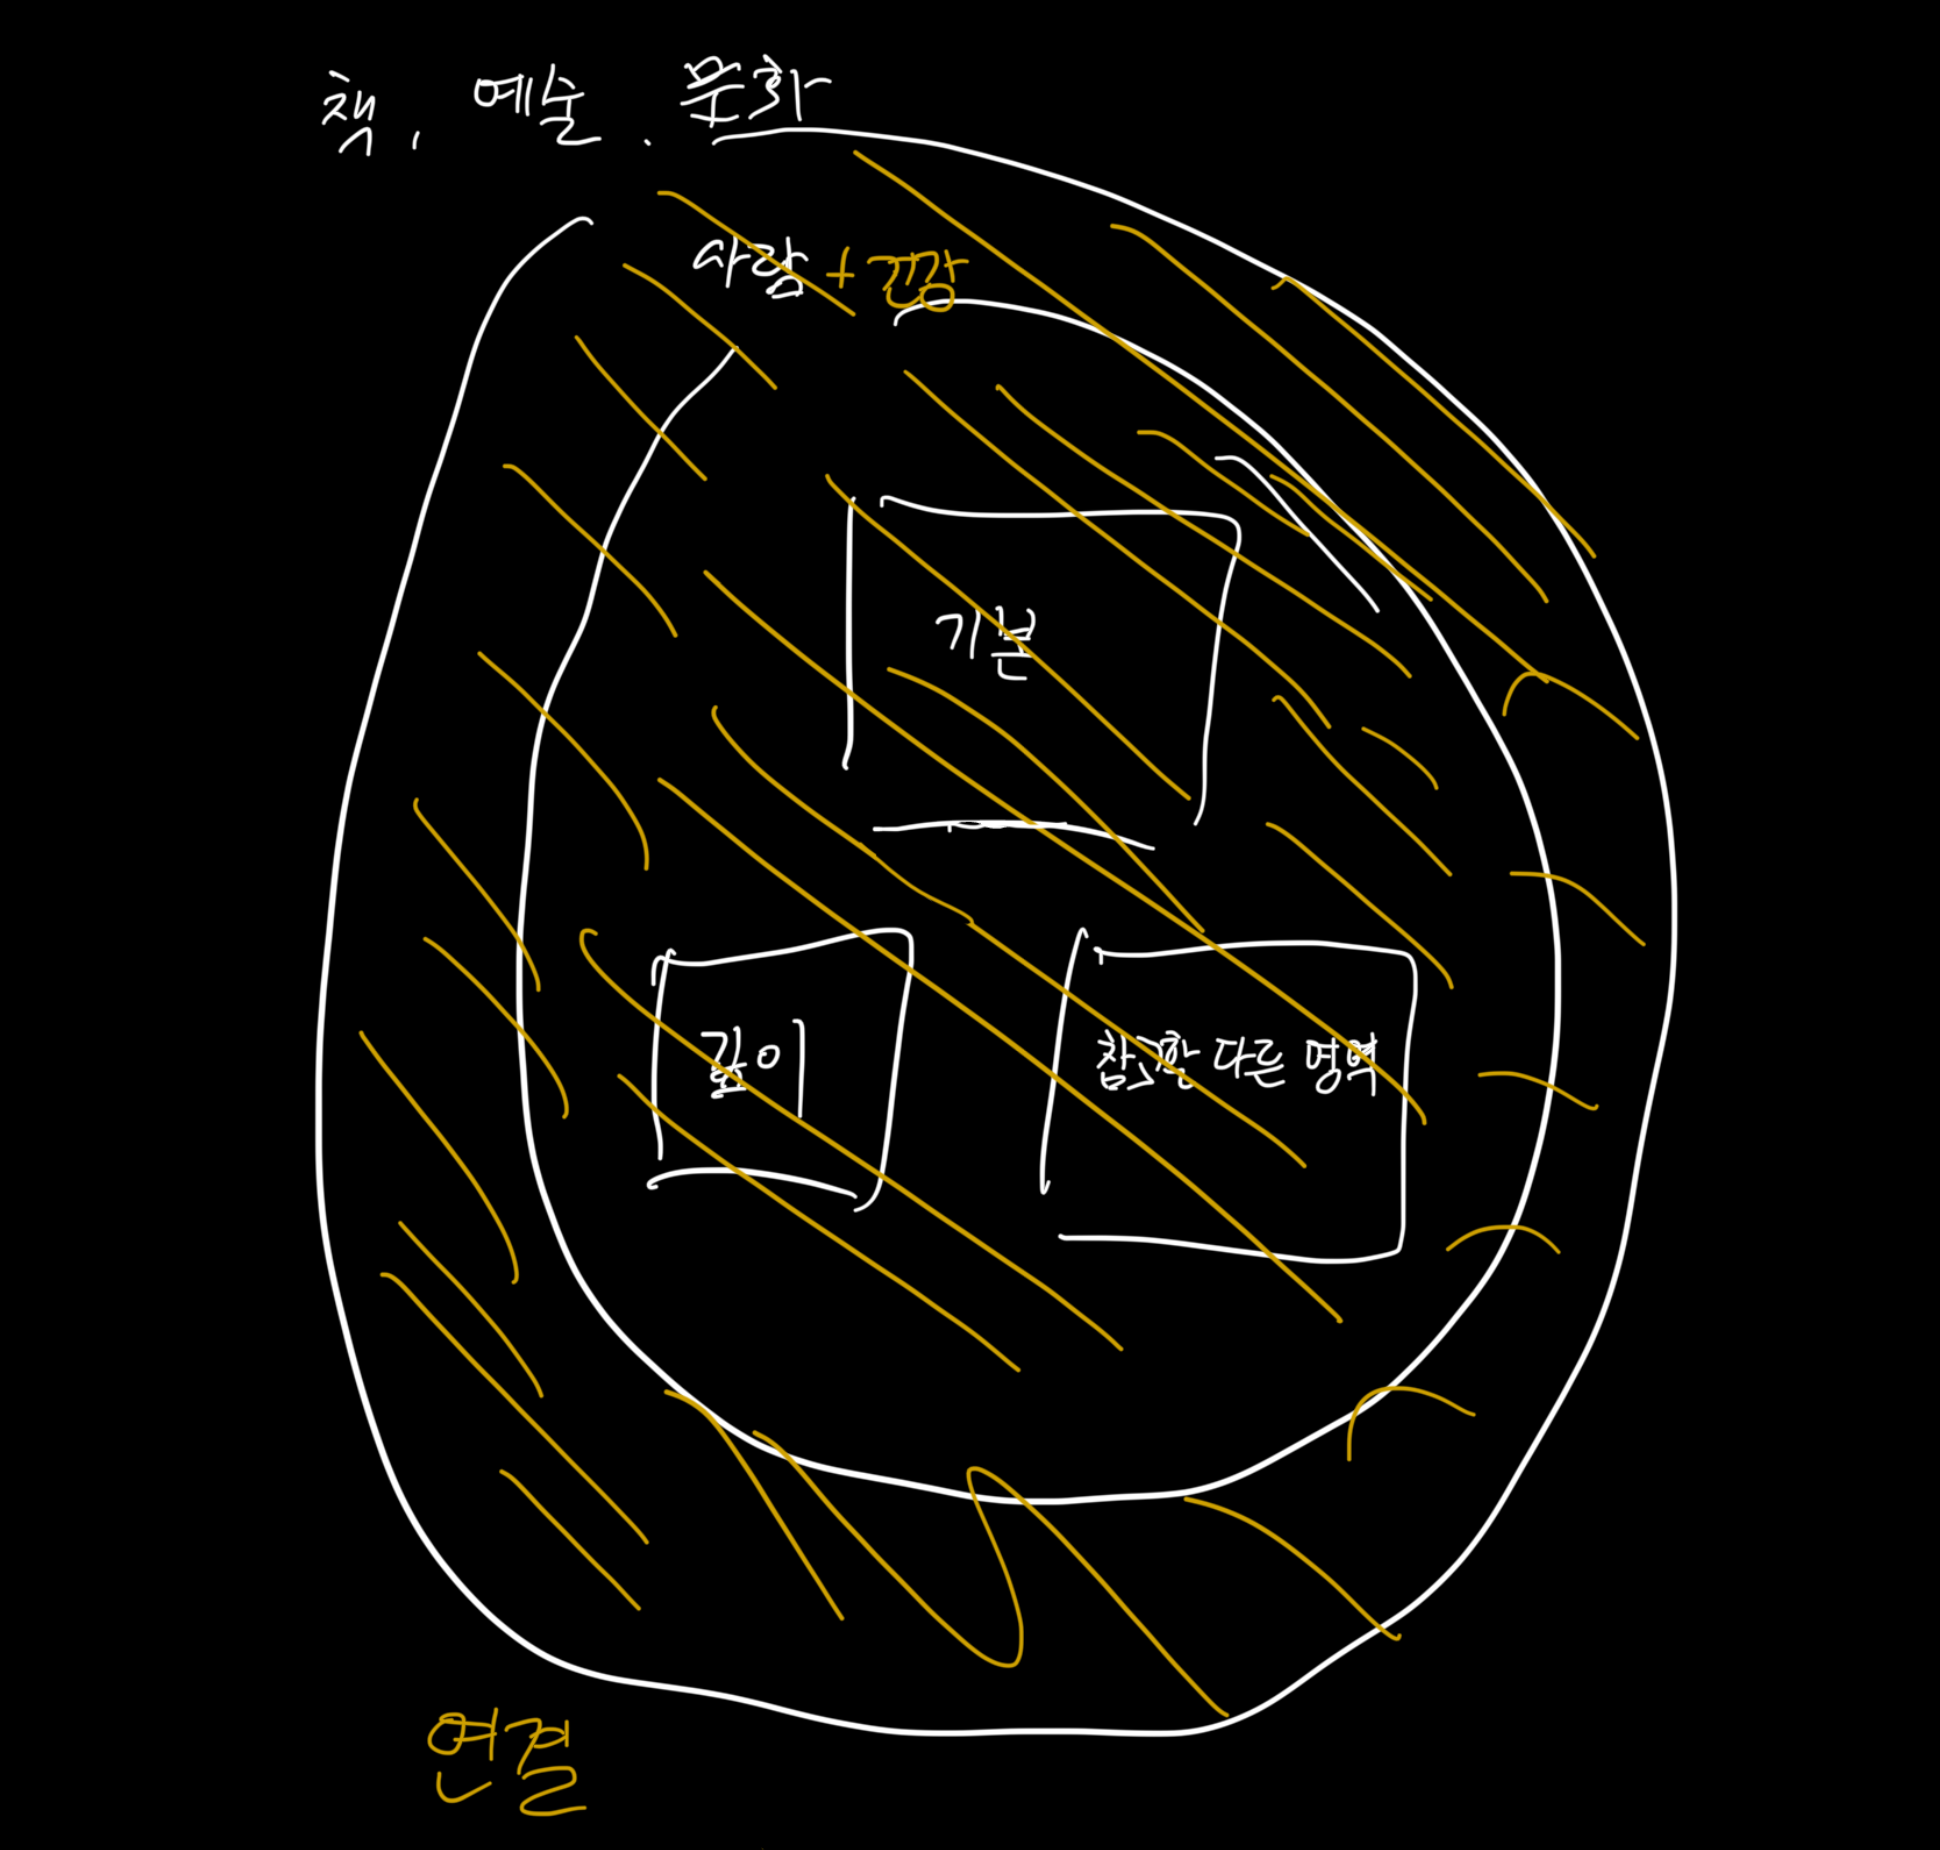 책, 예술, 문화
사람 + 깡
기본
깊이
참고할 다른 영역
연결